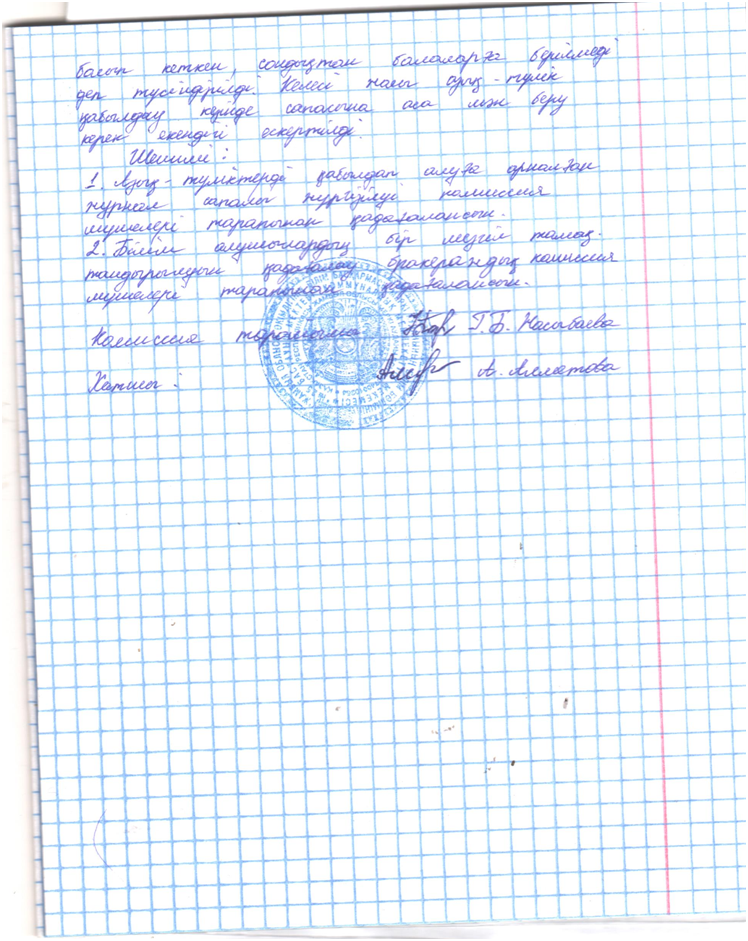 балып кеткен, сондықтан балаларға берілмеді
деп түсіндірілді. Келесі жолы азық-түлік
қабылдау кезінде сапасына аса мән беру
керек екендігі ескертілді.
Шешімі:
1. Азық-түліктерді қабылдап алуға арналған
журнал сапалы жүргізілуі комиссия
мүшелері тарапынан қадағалансын.
2. Білім алушылардың бір мезгіл тамақ-
тандырылуын қадағалау бракераждық комиссия
мүшелері тарапынан қадағалансын.
Комиссия төрайымы Г.Б.
Хатшы: А. Алматова